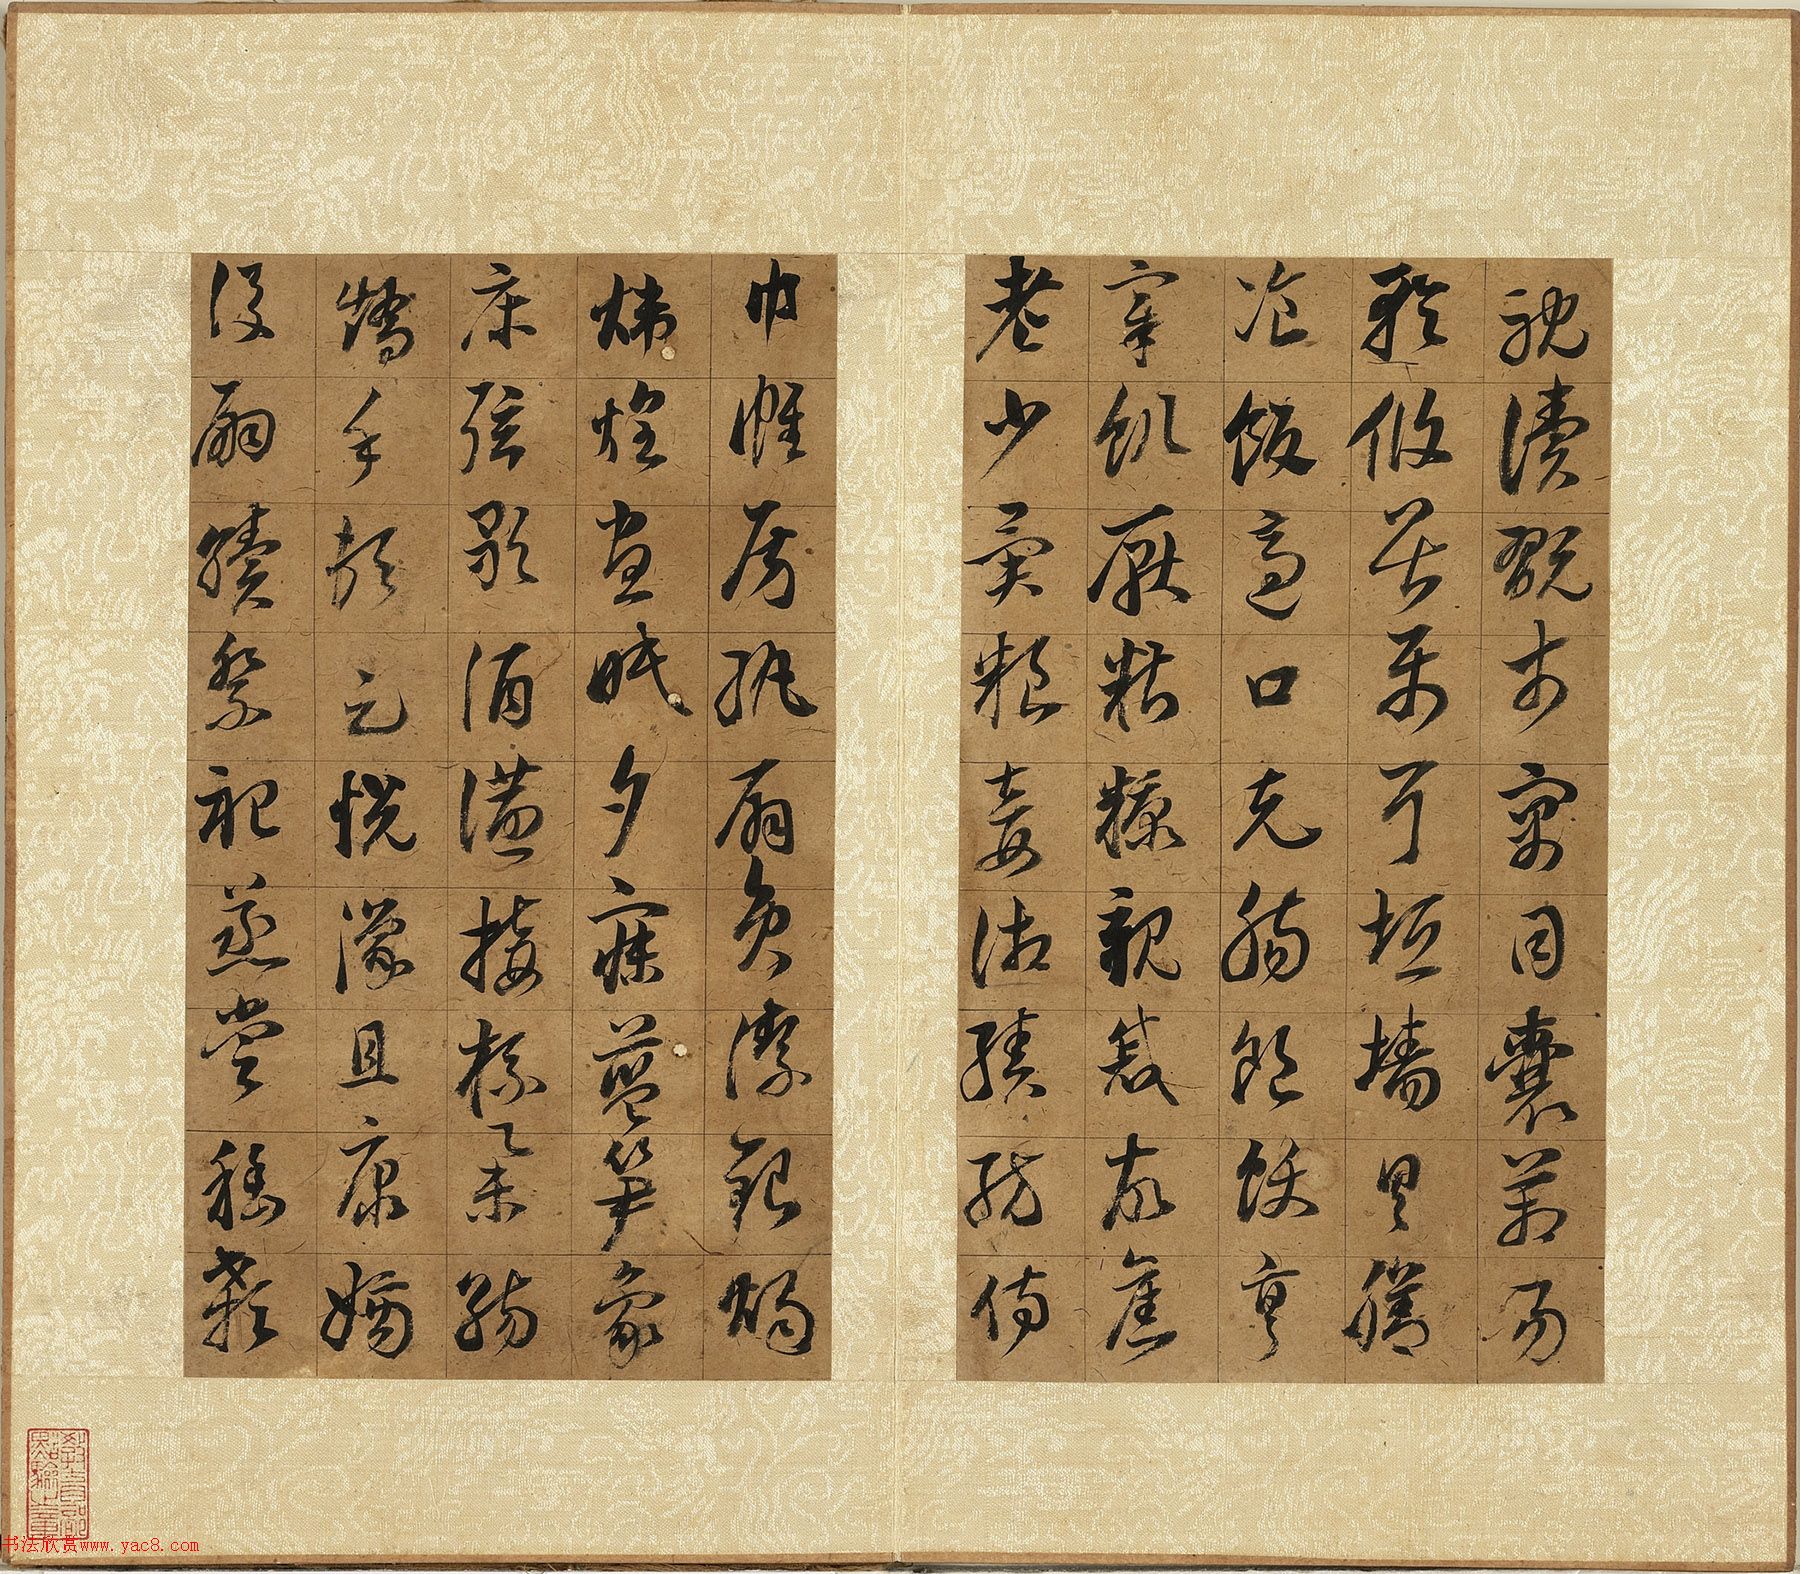 耽讀翫市寓目囊箱易
輶攸畏屬耳垣墻具膳
飡飯適口充腸飽飫烹
宰飢厭糟糠親戚故舊
老少異糧妾御績紡侍
巾帷房紈扇員潔銀燭
煒煌晝眠夕寐藍笋象
床弦歌酒讌接杯舉觴
矯手頓足悅豫且康嫡
後嗣續祭祀蒸嘗稽顙
教育部
點驗之章
书法欣赏www.yac8.com